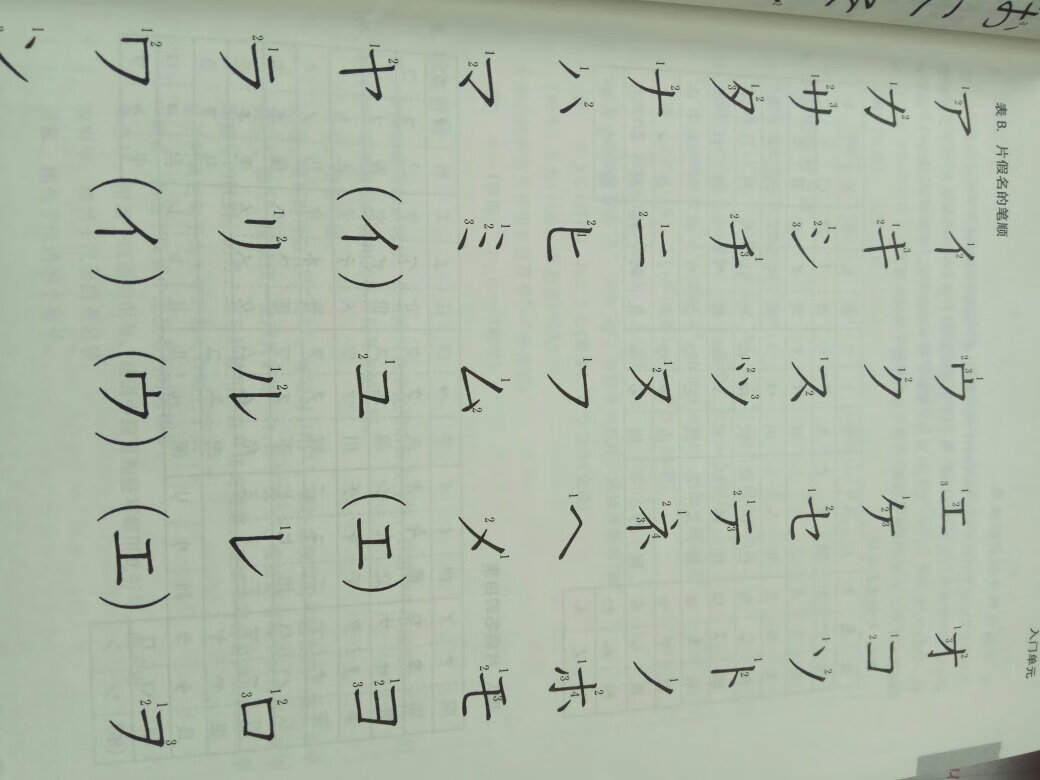 入门单元
表 B. 片假名的笔顺
ア イ ウ エ オ
カ キ ク ケ コ
サ シ ス セ ソ
タ チ ツ テ ト
ナ ニ ヌ ネ ノ
ハ ヒ フ ヘ ホ
マ ミ ム メ モ
ヤ (イ) ユ (エ) ヨ
ラ リ ル レ ロ
ワ (イ) (ウ) (エ) ヲ
ン